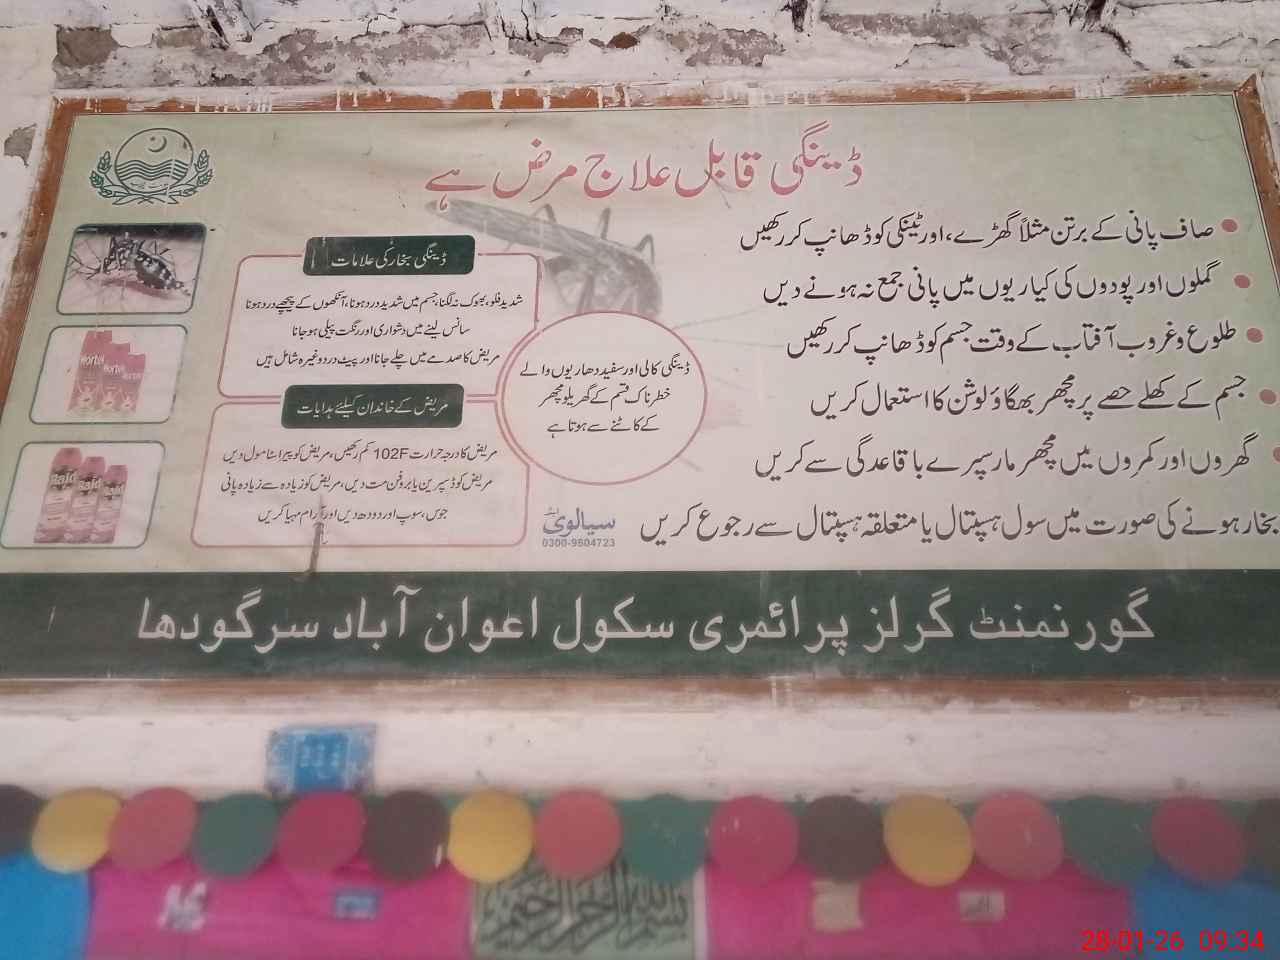 ڈینگی قابل علاج مرض ہے
صاف پانی کے برتن مثلاً گھڑے، اور ٹینکی کو ڈھانپ کر رکھیں
گملوں اور پودوں کی کیاریوں میں پانی جمع نہ ہونے دیں
طلوع و غروب آفتاب کے وقت جسم کو ڈھانپ کر رکھیں
جسم کے کھلے حصے پر مچھر بھگاؤ لوشن کا استعمال کریں
گھروں اور کمروں میں مچھر مار سپرے باقاعدگی سے کریں
بخار ہونے کی صورت میں سول ہسپتال یا متعلقہ ہسپتال سے رجوع کریں
ڈینگی کالی اور سفید دھاریوں والے
خطرناک قسم کے گھریلو مچھر
کے کاٹنے سے ہوتا ہے
ڈینگی بخار کی علامات
شدید فلو، بھوک نہ لگنا، جسم میں شدید درد ہونا، آنکھوں کے پیچھے درد ہونا
سانس لینے میں دشواری اور رنگت پیلی ہو جانا
مریض کا صدمے میں چلے جانا اور پیٹ درد وغیرہ شامل ہیں
مریض کے خاندان کیلئے ہدایات
مریض کا درجہ حرارت 102F کم رکھیں، مریض کو پیراسٹامول دیں
مریض کو ڈسپرین یا بروفن مت دیں، مریض کو زیادہ سے زیادہ پانی
جوس، سوپ اور دودھ دیں اور آرام مہیا کریں
Mortein
Mortein
Mortein
Raid
Raid
Raid
سیالوی
0300-9604723
گورنمنٹ گرلز پرائمری سکول اعوان آباد سرگودھا
بسم الله الرحمن الرحيم
28-01-26 09:34